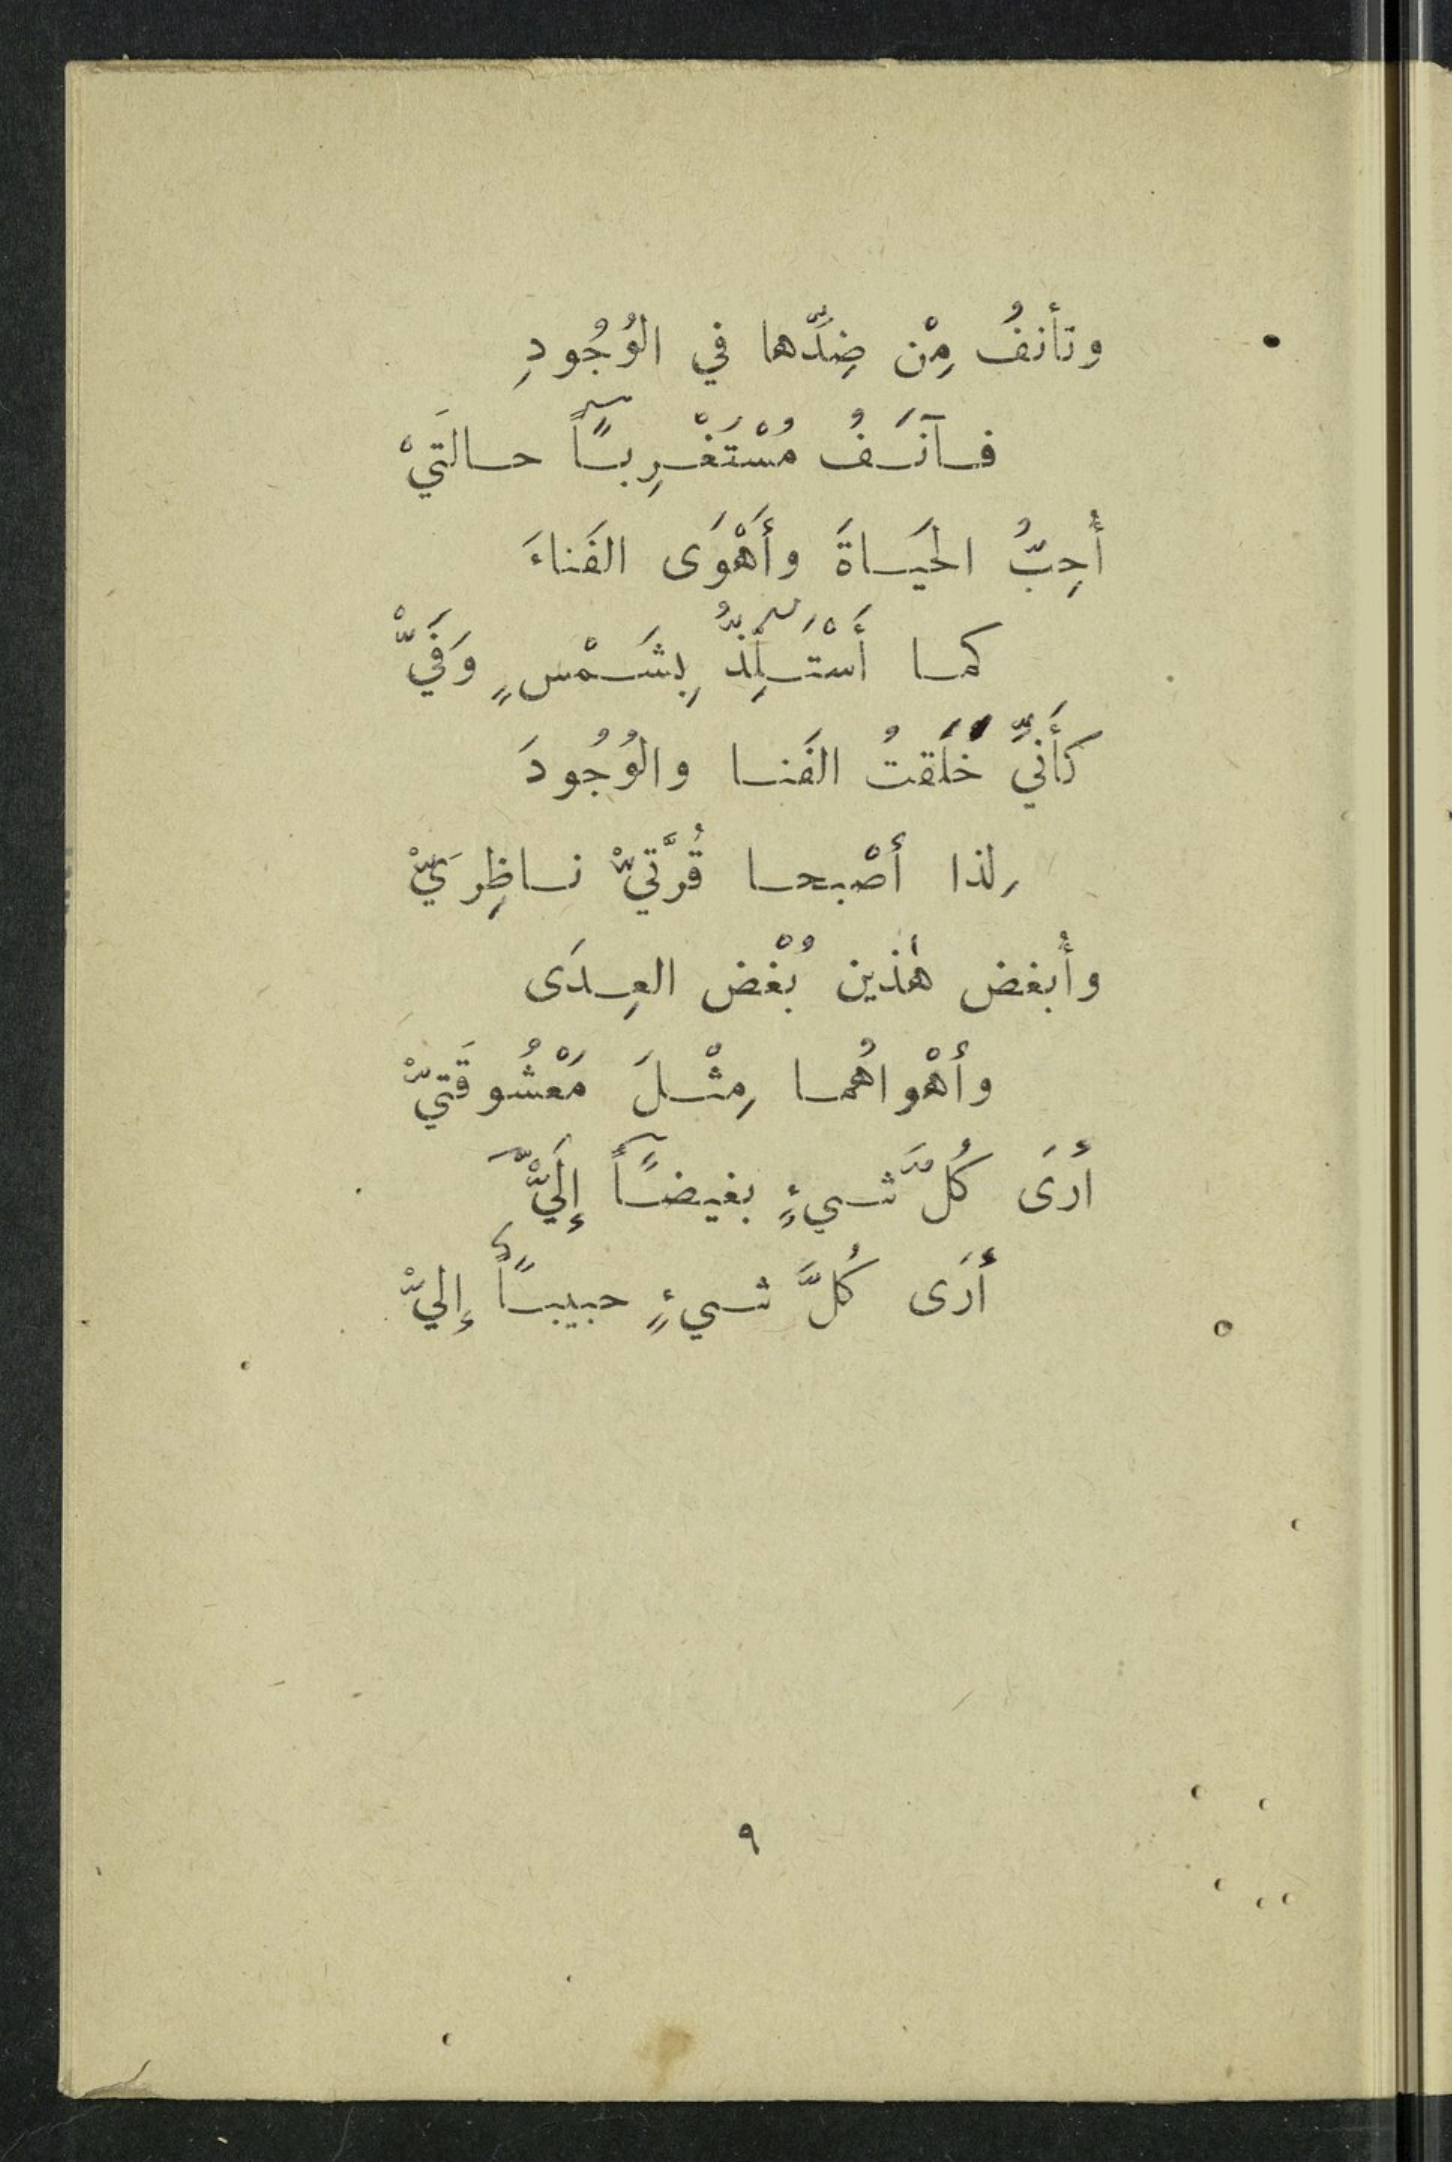 وتأنفُ مِنْ ضِدِّها في الوُجُودِ
فآنَفُ مُسْتَغْرِباً حالَتَيْ
أُحِبُّ الحَيَاةَ وأَهْوَى الفَناءَ
كما أَسْتَلِذُّ بِشَمْسٍ وَفَيّْ
كأَنيِّ خَلَقتُ الفَنا والوُجُودَ
لِذا أصْبحا قُرَّتيّْ ناظِرَيّْ
وأُبغض هٰذين بُغْض العِدَى
وأهْواهُما مِثْلَ مَعْشُوقَتيّْ
أرَى كُلَّ شيءٍ بغيضاً إِلَيَّْ
أرَى كُلَّ شيءٍ حبيباً إِليّْ
٩